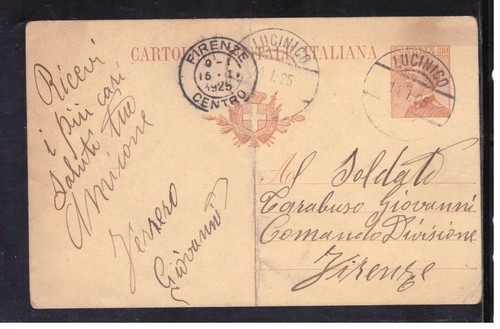 CARTOLINA POSTALE ITALIANA
FIRENZE
15 · I
1925
CENTRO
LUCINICO
1.25
LUCINICO
14.1.25
30
Ricevi
i più cari
saluti tuo
Amicone
Verzero
Giovanni
Al Soldato
Tarabuso Giovanni
Comando Divisione
Firenze